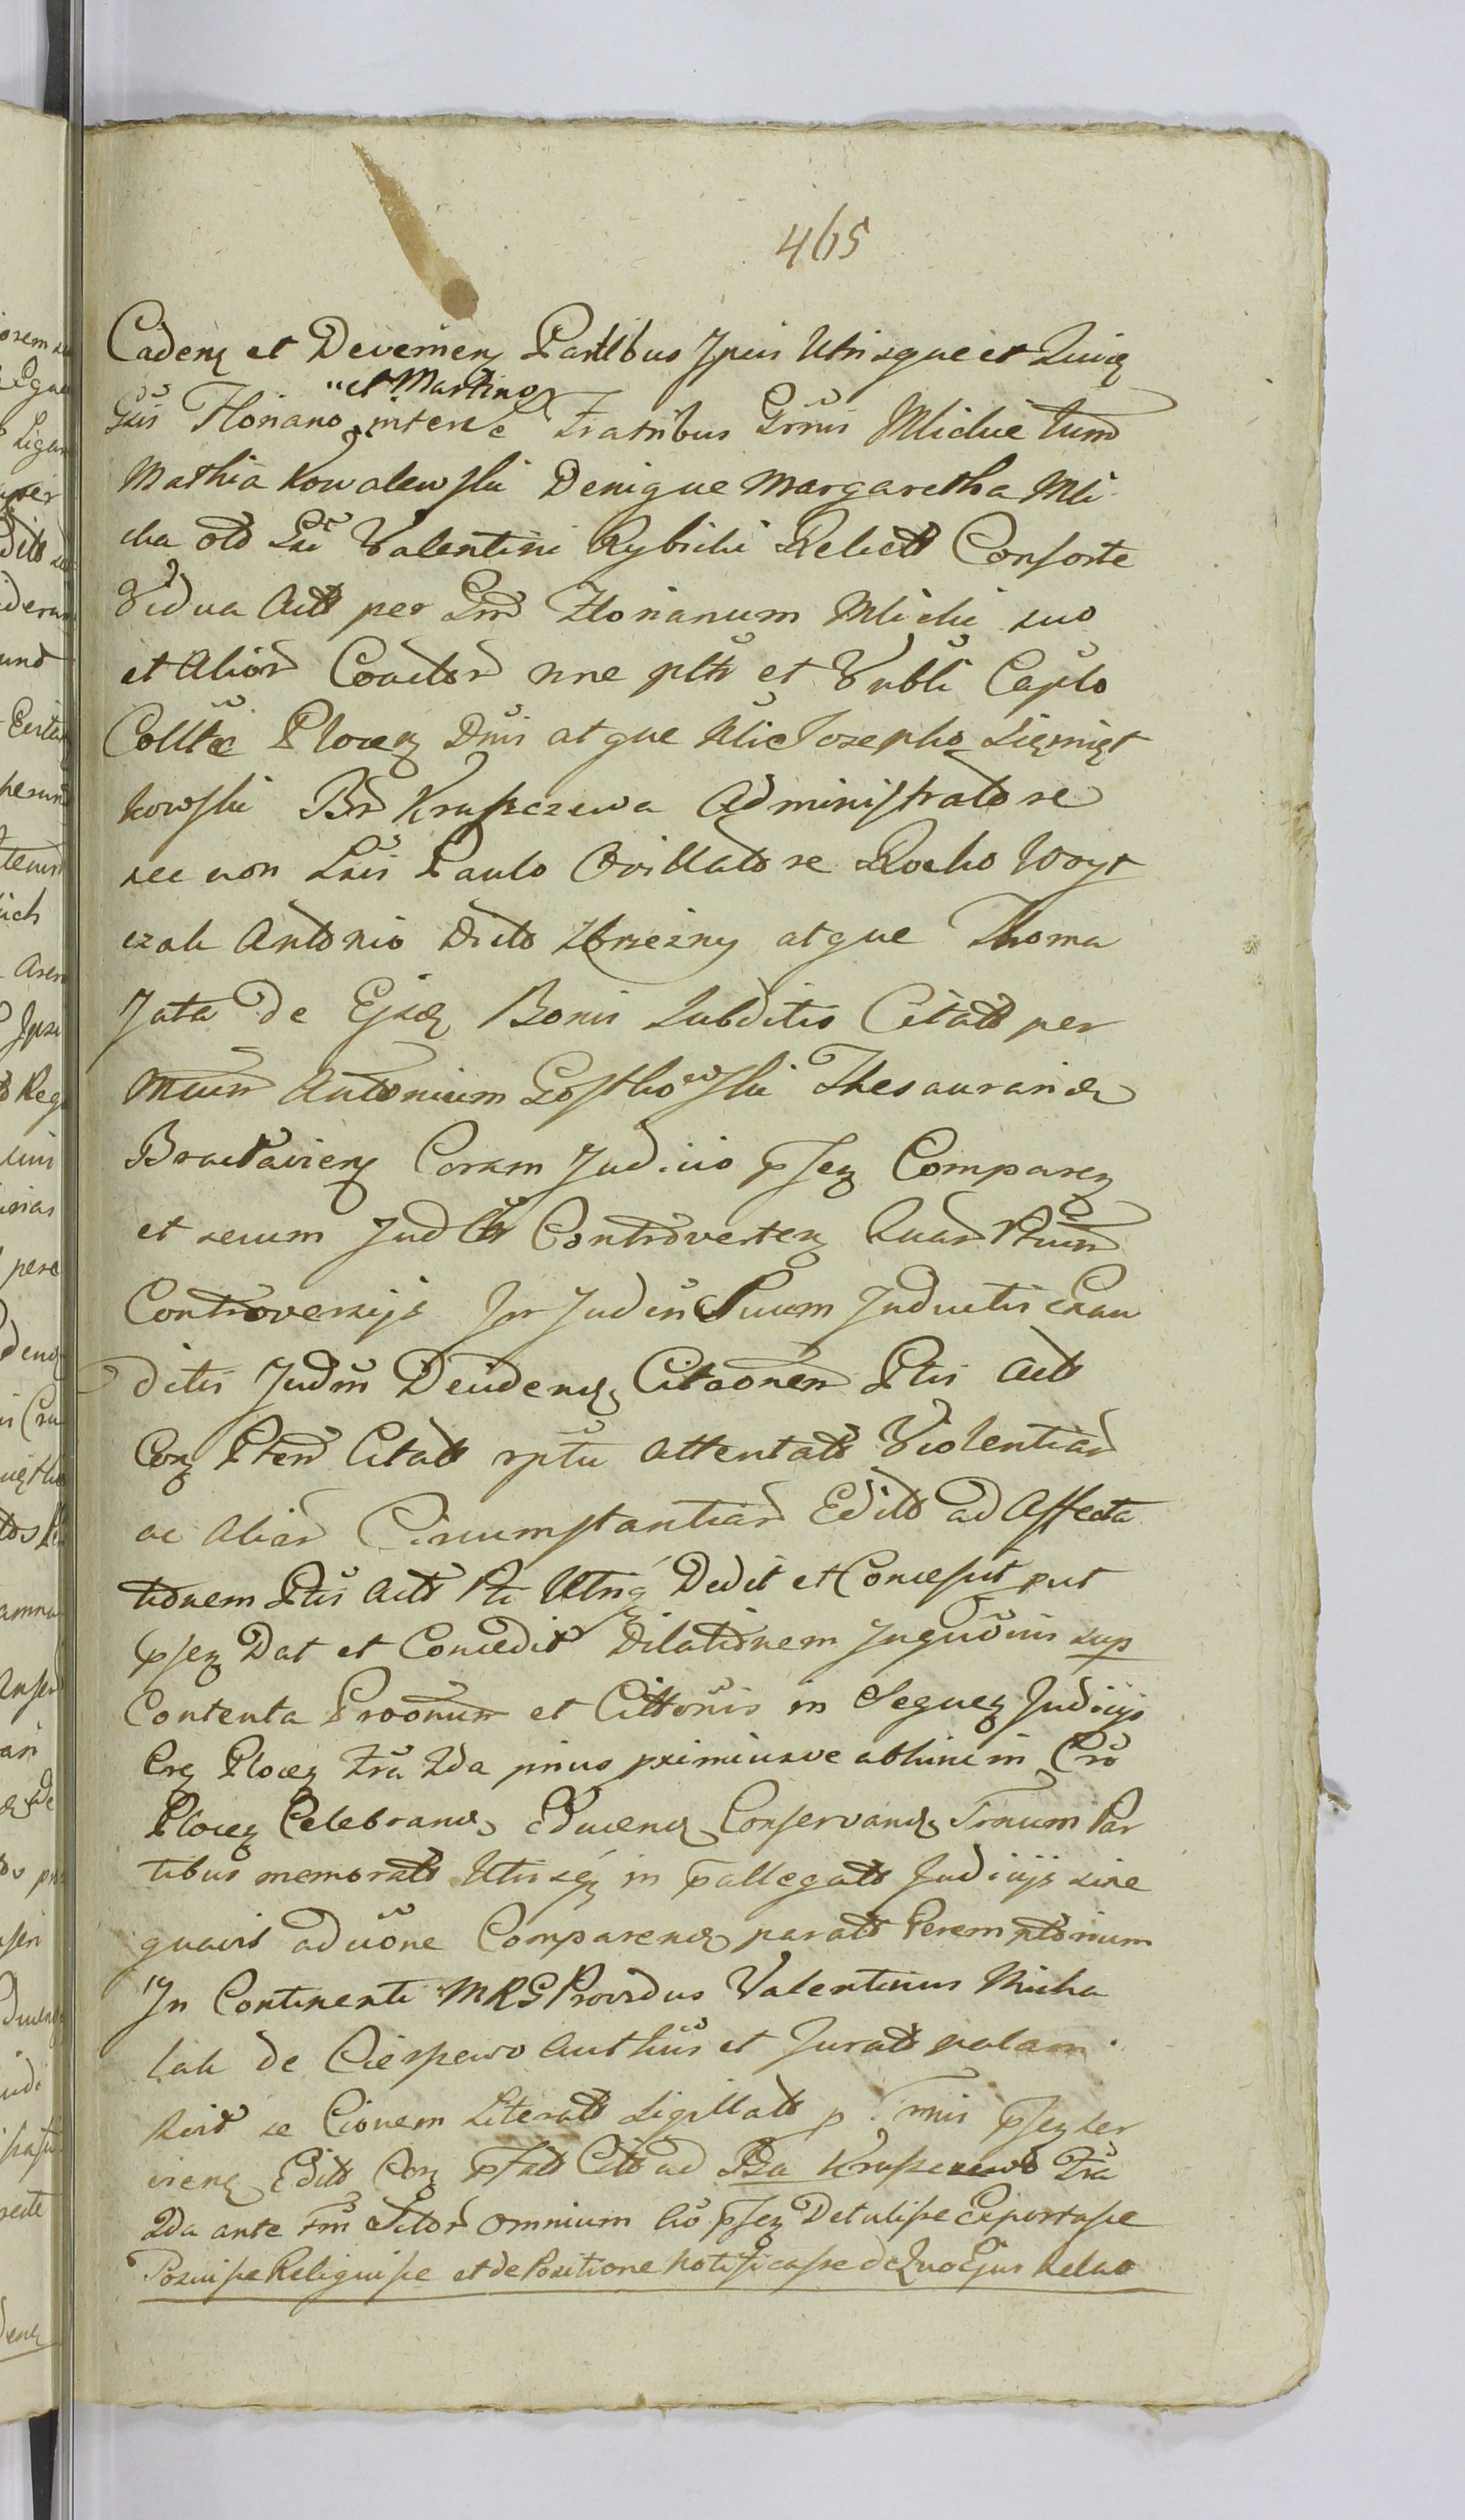 465
Cadenz et Devenienz Partibus Ipsis Utrisque et quidz
"et Martino
Gsis Floriano interse Fratribus Grmis Mlickie tum
Mathia Kowalewski Denique Margaretha Mli
cka olo Gsi Valentini Rybicki Relictt Consorte
Vidua Actt per Gm Florianum Mlicki suo
et Alior Coactor nne pltr et Vnbli Caplo
Colltae Plocenz Dnis atque Mlie Josepho Siemięt
kowski Br Kruszczewa Administratore
nec non Lris Paulo Ovillatore Rocho Woyt
czak Antonio dicto Zbrzezny atque Thoma
Jata de Ejsdz Bonis Subditis Citatt per
Mcum Antonium Gostkowski Thesaurarid
Braclavienz Coram Judicio psenz Comparenz
et secum Judltr Controvertenz Quar Ptium
Controversijs In Judm Suum Inductis Exau
ditis Judm Decidendz Citaonem Ptis Actt
Conz Ptem Citatt rptu Attentatt Violentiar
ac Aliar Circumstantiar Edito ad Affecta
tionem Ptis Actt Pti Utriq Dedit et Concessit put
psenz Dat et Concedit Dilationem Inquonis sup
Contenta Proonum et Cittonis in Sequenz Judicijs
Crz Plocenz Fra 2da prius primiusve abhinc in Cro
Plocenz Celebrandz Educendz Conservandz Trnum Par
tibus memoratt Utrisqz in pallegatt Judicijs sine
quavis aduone Comparendz paratt Peremptorium
In Continenti MRG Providus Valentinus Micha
lak de Ciespewo Authus et Juratt palam
Recit se Cionem Literatt Sigillatt p. Tmis psenz ser
vienz Editt Conz pfatt Citt ad Bza Kruszczewo Fra
2da ante Fm Sctor omnium Ao psenz Detulisse Exportasse
Posuisse Reliquisse et de Positione Notificasse de Quo Ejus Relao